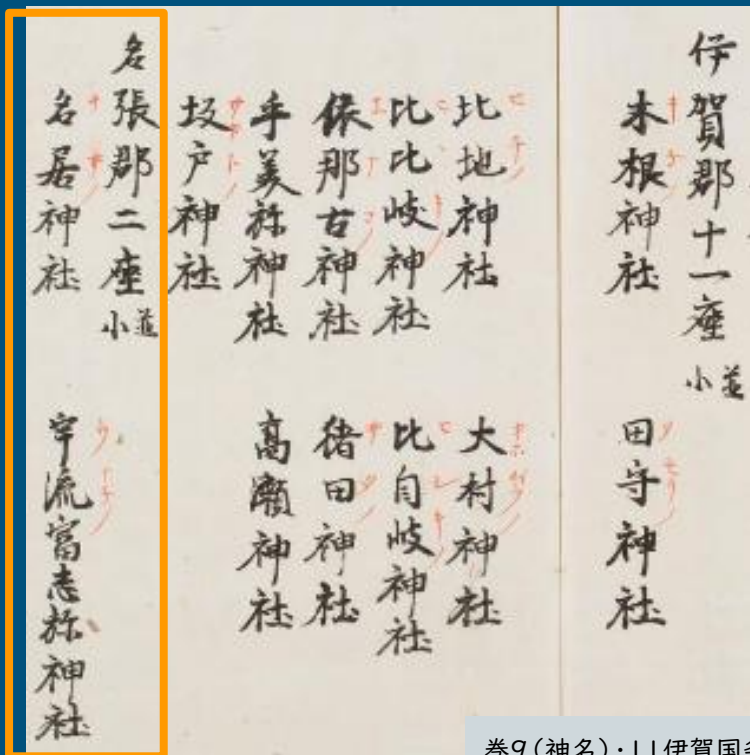 伊賀郡十一座 並小
木根神社 田守神社
比地神社 大村神社
比比岐神社 比自岐神社
依那古神社 猪田神社
乎美祢神社 高瀬神社
坂戸神社
名張郡二座 並小
名居神社 宇流冨志祢神社
巻9(神名)・11伊賀国